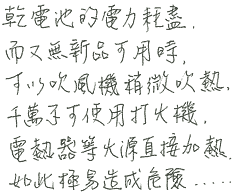 乾電池的電力耗盡,
而又無新品可用時,
可以吹風機稍微吹熱,
千萬不可使用打火機,
電熱器等火源直接加熱,
如此極易造成危險......